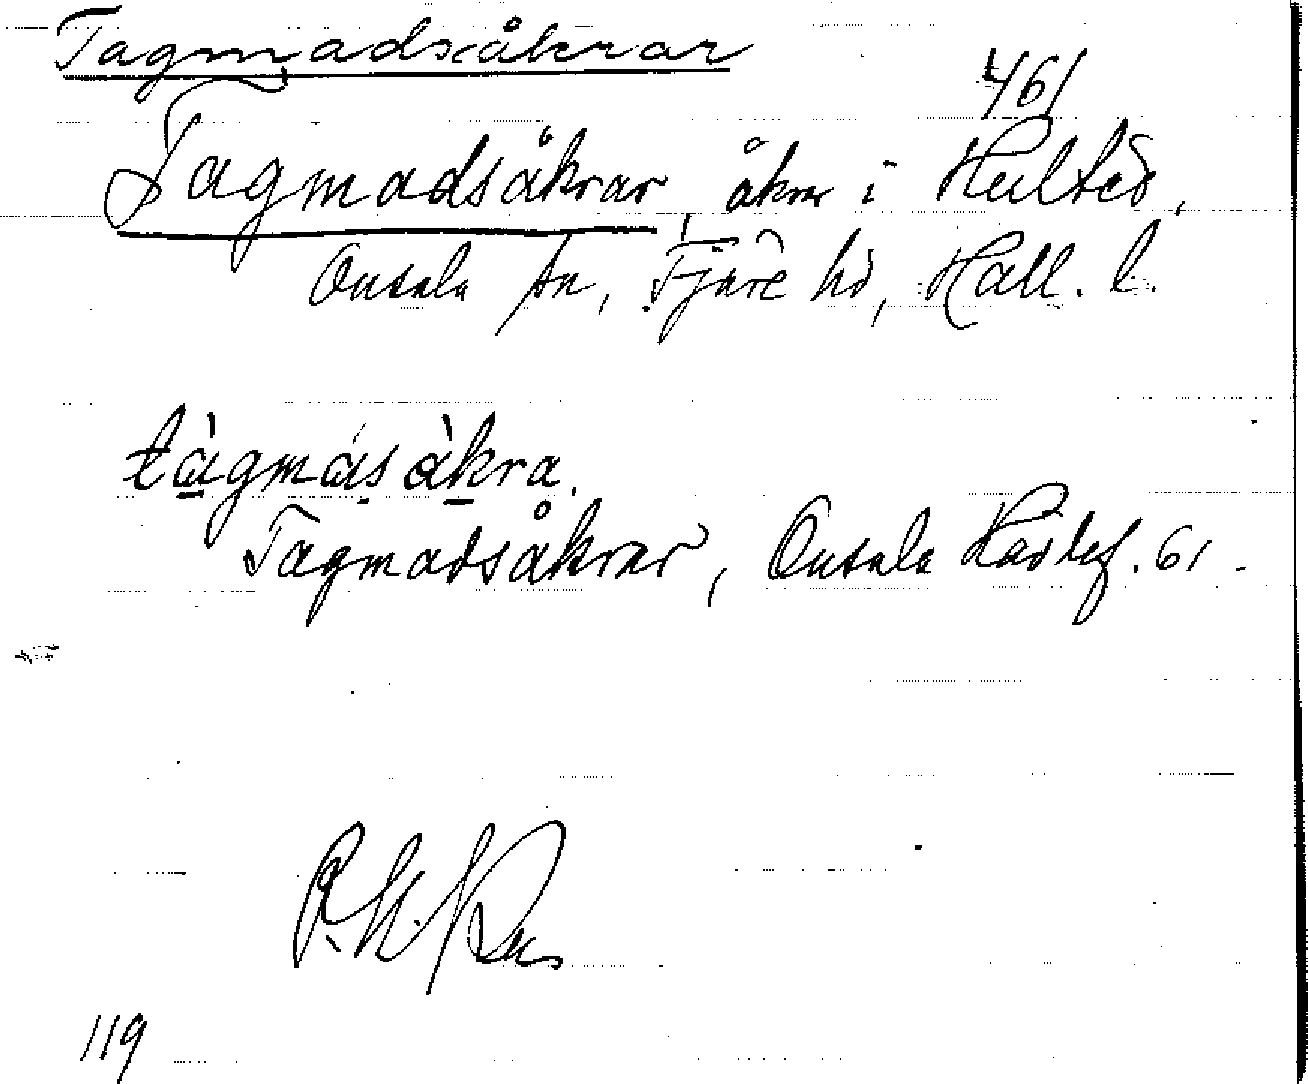 Tagmadsåkrar
461
Tagmadsåkrar, åkrar i Hulted,
Onsala sn, Fjäre hd, Hall. l.
tàgmásàkra.
Tagmadsåkrar, Onsala 61.
119